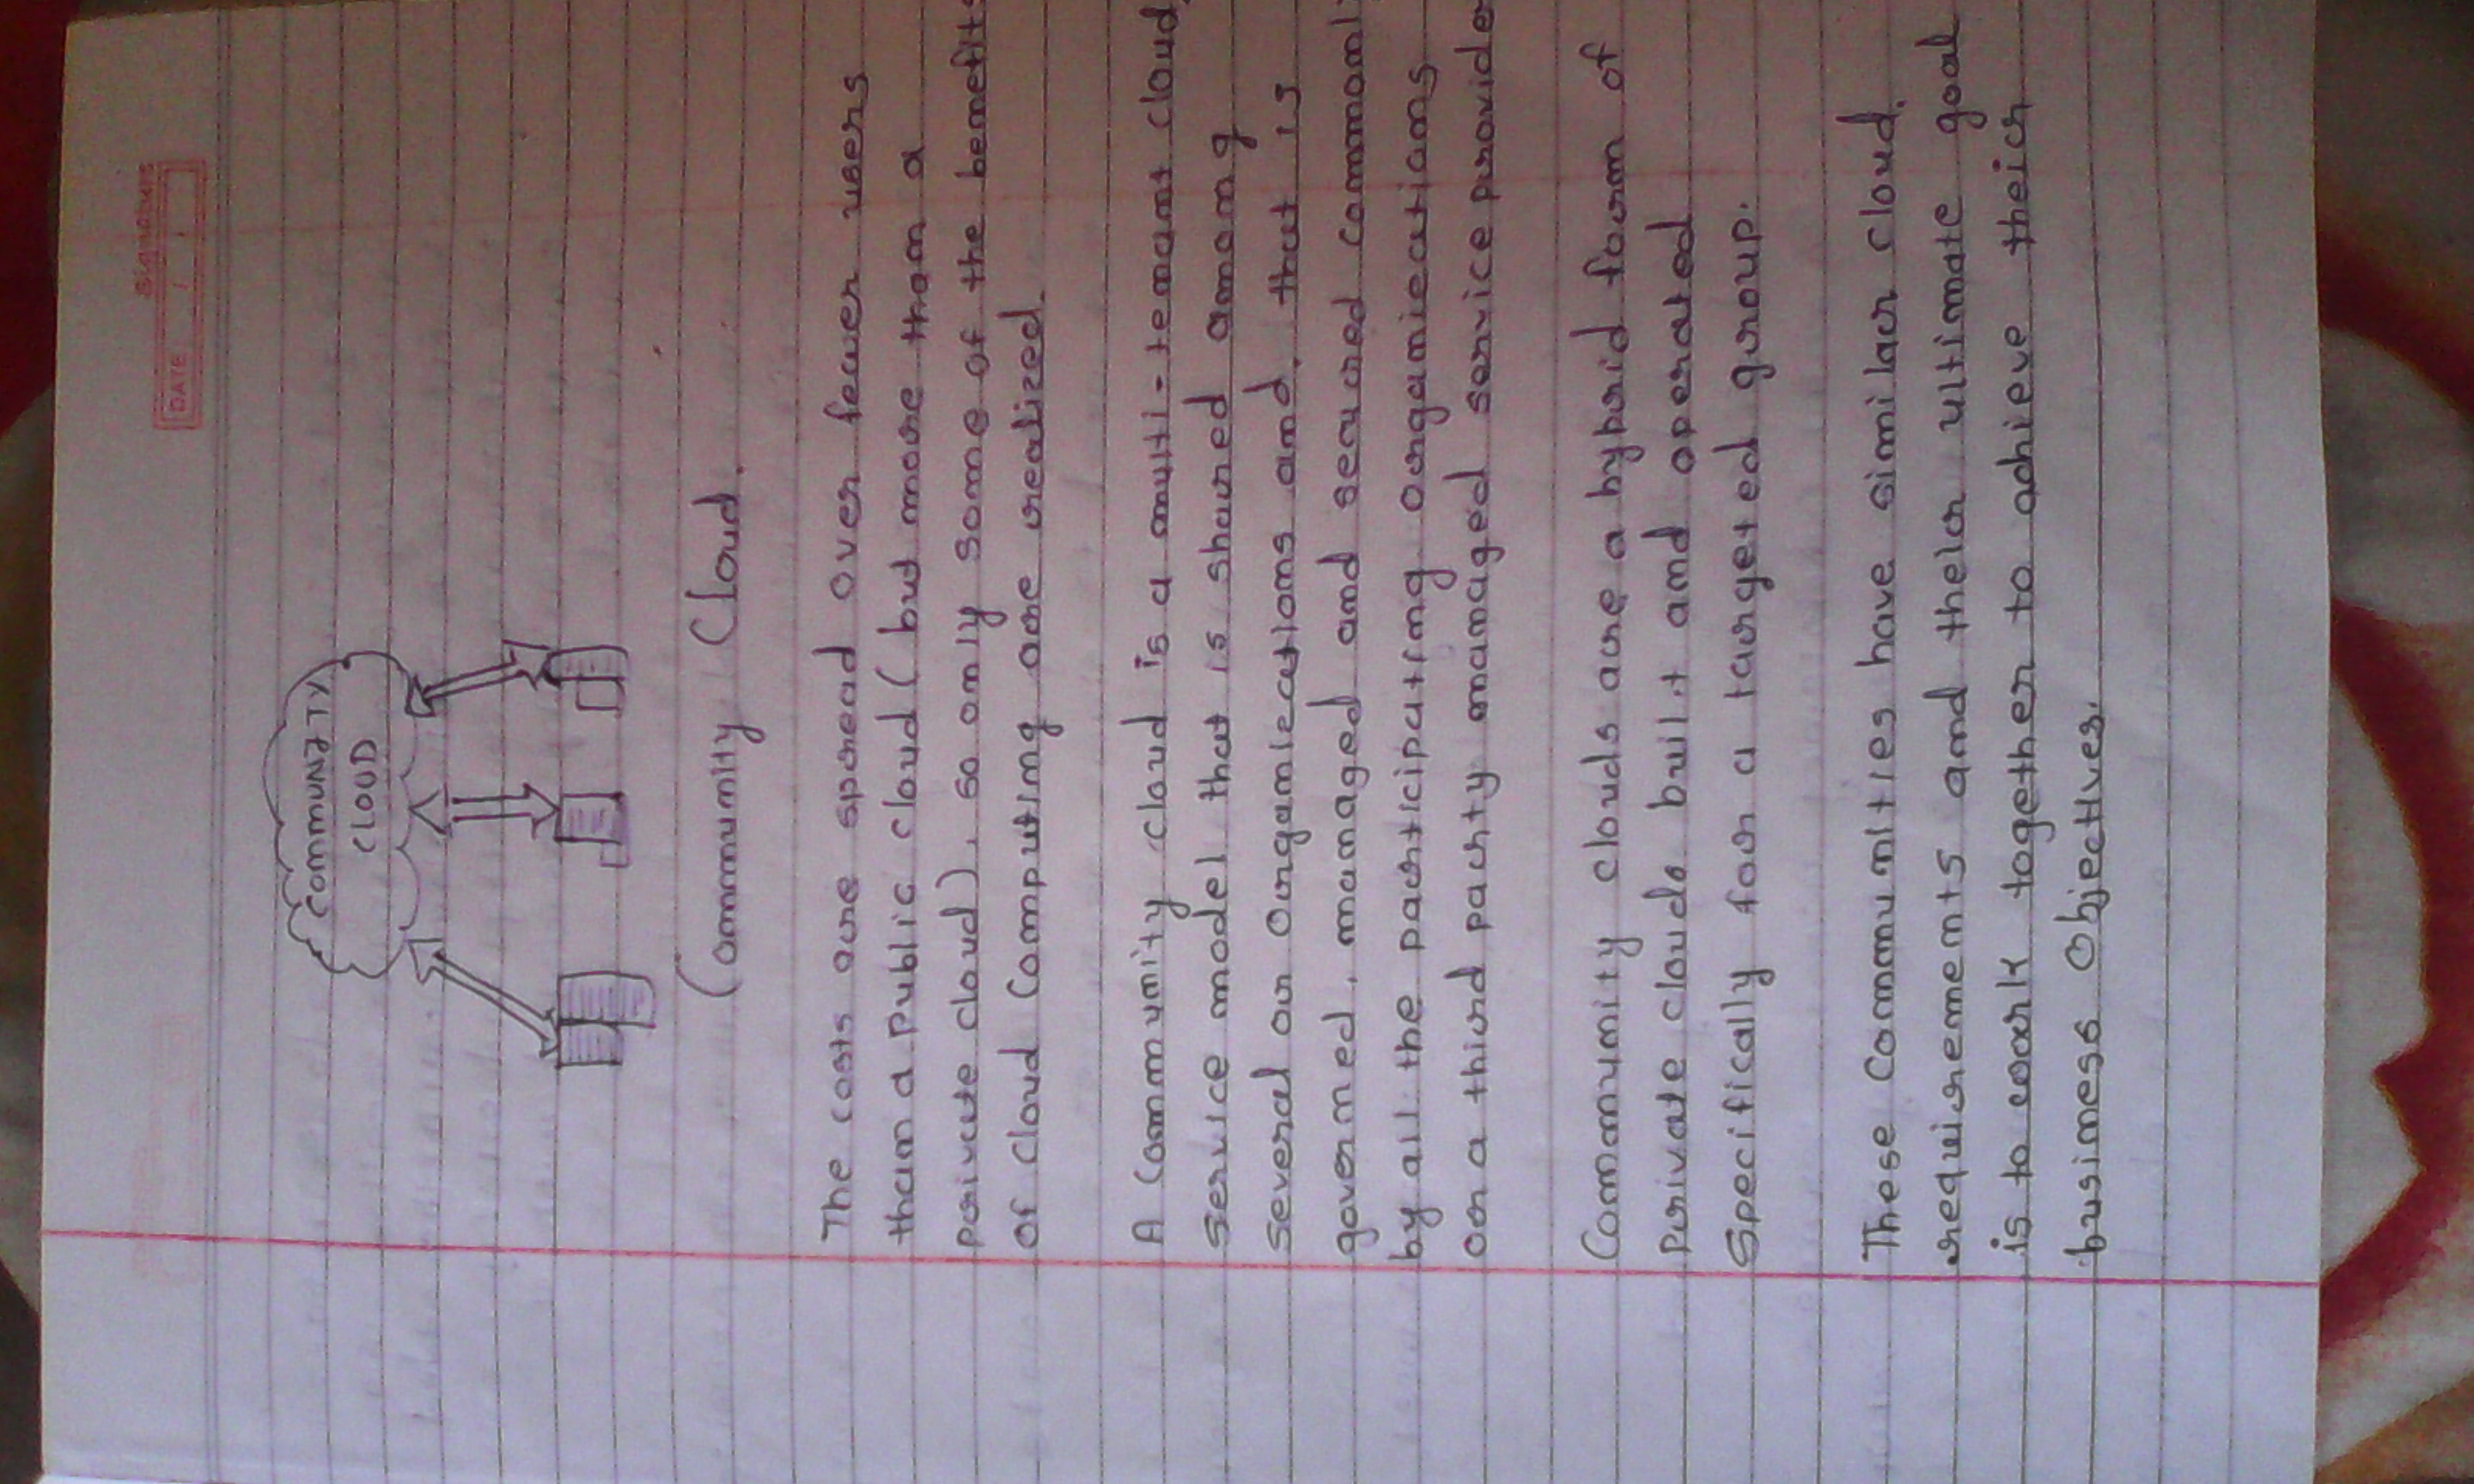 Signature
DATE / /
COMMUNITY
CLOUD
Community Cloud.
The costs are spread over fewer users
than a Public cloud ( but more than a
private cloud), so only some of the benefits
of cloud Computing are realized.
A Community cloud is a multi-tenant cloud
service model that is shared among
several or Organizations and. that is
governed, managed and secured commonl
by all the participating organizations
or a third party managed service provide
Community clouds are a hybrid form of
Private clouds built and operated
Specifically for a targeted group.
These Communities have similar cloud.
requirements and their ultimate goal
is to work together to achieve their
business Objectives.